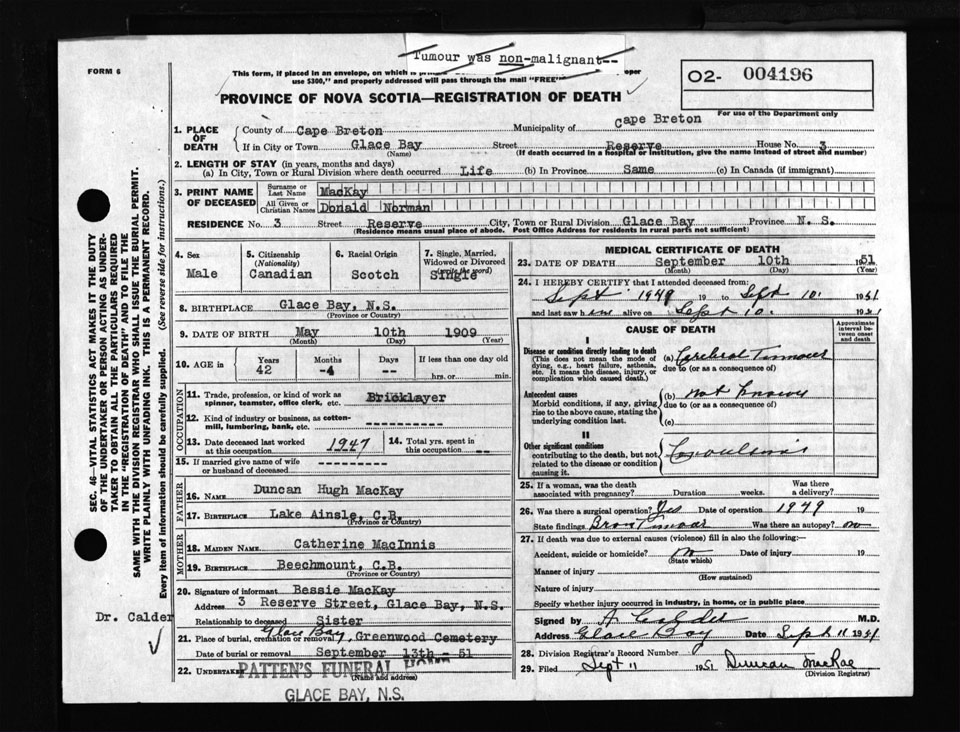 Tumour was non-malignant--
FORM 6
This form, if placed in an envelope, on which is
use $300," and properly addressed will pass through the mail "FREE"
O2- 004196
For use of the Department only
PROVINCE OF NOVA SCOTIA—REGISTRATION OF DEATH
1. PLACE OF DEATH
County of Cape Breton Municipality of Cape Breton
If in City or Town Glace Bay Street Reserve House No. 3
(Name) (If death occurred in a hospital or institution, give the name instead of street and number)
2. LENGTH OF STAY (in years, months and days)
(a) In City, Town or Rural Division where death occurred Life (b) In Province Same (c) In Canada (if immigrant)
3. PRINT NAME OF DECEASED
Surname or Last Name MacKay
All Given or Christian Names Donald Norman
RESIDENCE No. 3 Street Reserve City, Town or Rural Division Glace Bay Province N. S.
(Residence means usual place of abode. Post Office Address for residents in rural parts not sufficient)
4. Sex Male
5. Citizenship (Nationality) Canadian
6. Racial Origin Scotch
7. Single, Married, Widowed or Divorced (write the word) Single
8. BIRTHPLACE Glace Bay, N.S.
(Province or Country)
9. DATE OF BIRTH May 10th 1909
(Month) (Day) (Year)
10. AGE in Years 42 Months -4 Days -- If less than one day old
hrs. or min.
OCCUPATION
11. Trade, profession, or kind of work as spinner, teamster, office clerk, etc. Bricklayer
12. Kind of industry or business, as cotton-mill, lumbering, bank, etc. ----------
13. Date deceased last worked at this occupation 1947 14. Total yrs. spent in this occupation --
15. If married give name of wife or husband of deceased ----------
FATHER
16. NAME Duncan Hugh MacKay
17. BIRTHPLACE Lake Ainsle, C.B.
(Province or Country)
MOTHER
18. MAIDEN NAME Catherine MacInnis
19. BIRTHPLACE Beechmount, C.B.
(Province or Country)
20. Signature of informant Bessie MacKay
Address 3 Reserve Street, Glace Bay, N.S.
Relationship to deceased Sister
21. Place of burial, cremation or removal Glace Bay, Greenwood Cemetery
Date of burial or removal September 13th - 51
22. UNDERTAKER PATTEN'S FUNERAL HOME
(Name and address)
GLACE BAY, N.S.
MEDICAL CERTIFICATE OF DEATH
23. DATE OF DEATH September 10th 1951
(Month) (Day) (Year)
24. I HEREBY CERTIFY that I attended deceased from:
Sept 1949 19 to Sept 10. 1951
and last saw him alive on Sept 10. 1951
CAUSE OF DEATH
Approximate interval between onset and death
I
Disease or condition directly leading to death
(This does not mean the mode of dying, e.g., heart failure, asthenia, etc. It means the disease, injury, or complication which caused death.)
(a) Cerebral Tumour
due to (or as a consequence of)
Antecedent causes
Morbid conditions, if any, giving rise to the above cause, stating the underlying condition last.
(b) not known
due to (or as a consequence of)
(c)
II
Other significant conditions
contributing to the death, but not related to the disease or condition causing it.
25. If a woman, was the death associated with pregnancy? Duration weeks. Was there a delivery?
26. Was there surgical operation? Yes Date of operation 1949 19
State findings Brain Tumour Was there an autopsy? no
27. If death was due to external causes (violence) fill in also the following:—
Accident, suicide or homicide? no Date of injury 19
(State which)
Manner of injury
(How sustained)
Nature of injury
Specify whether injury occurred in industry, in home, or in public place
Signed by A Calder M.D.
Address Glace Bay Date Sept 11 1951
28. Division Registrar's Record Number
29. Filed Sept 11 1951 Duncan MacRae
(Division Registrar)
SEC. 46—VITAL STATISTICS ACT MAKES IT THE DUTY
OF THE UNDERTAKER OR PERSON ACTING AS UNDER-
TAKER TO OBTAIN ALL THE PARTICULARS REQUIRED
IN THE "REGISTRATION OF DEATH" AND TO FILE THE
SAME WITH THE DIVISION REGISTRAR WHO SHALL ISSUE THE BURIAL PERMIT.
WRITE PLAINLY WITH UNFADING INK. THIS IS A PERMANENT RECORD.
Every item of information should be carefully supplied. (See reverse side for instructions.)
Dr. Calder